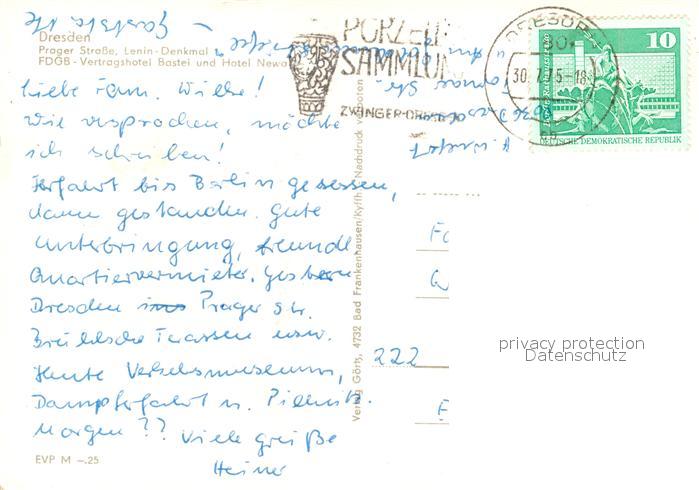 Dresden
Prager Straße, Lenin-Denkmal
FDGB - Vertragshotel Bastei und Hotel Newa
PORZELL
SAMMLUN
ZWINGER·DRESDEN
DRESDEN
30.7.75-18
10
DEUTSCHE DEMOKRATISCHE REPUBLIK
Liebe Fam. Wilke!
Wie versprochen, möchte
ich schreiben!
Herfahrt bis Berlin gesessen,
dann gestanden. Gute
Unterbringung, freundl.
Quartiervermieter. Gestern
Dresden Prager Str.
Brühlsche Terassen usw.
Heute Verkehrsmuseum,
Dampferfahrt n. Pillnitz.
Morgen?? Viele Grüße
Heiner
222
Verlag Görtz, 4732 Bad Frankenhausen/Kyffh. Nachdruck verboten
EVP M –.25
privacy protection
Datenschutz